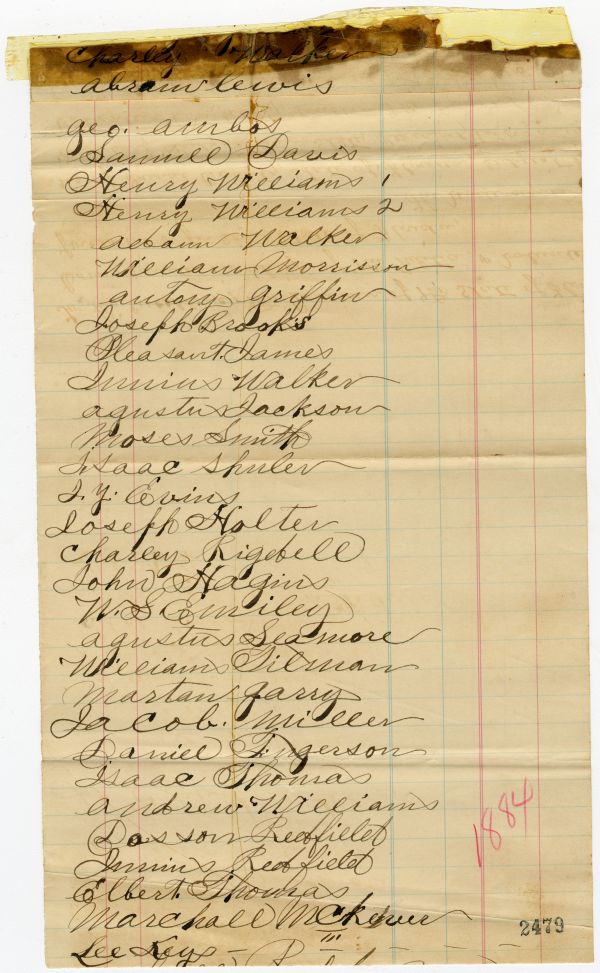 Charley Walker
abram lewis
geo. ambos
Samuell Davis
Henry Williams 1
Henry Williams 2
adam Walker
William Morrisson
antony griffin
Joseph Brooks
Pleasant. James
Junius Walker
agustus Jackson
Moses Smith
Isaac Shuler
J. Y. Evins
Joseph Holter
Charley Rigdbell
John Hagins
W. S. Emiley
agustus Seamore
William Tilman
Martan garry
Jacob. Miller
Daniel Fingerson
Isaac Thomas
andrew Williams
Dosson Redfield
Junius Redfield
Elbert. Thomas
Marchall McKever
Lee Keys
1884
2479